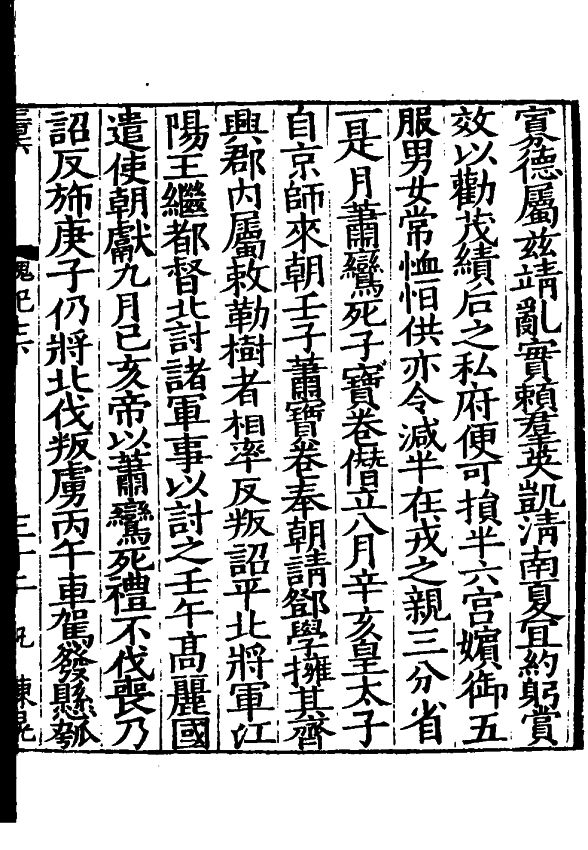 寡德屬茲靖亂實賴羣英凱清南夏宜約躬賞
效以勸茂績后之私府便可損半六宮嬪御五
服男女常恤恒供亦令減半在戎之親三分省
一是月蕭鸞死子寶卷僭立八月辛亥皇太子
自京師來朝壬子蕭寶卷奉朝請鄧學擁其齊
興郡內屬敕勒樹者相率反叛詔平北將軍江
陽王繼都督北討諸軍事以討之壬午高麗國
遣使朝獻九月己亥帝以蕭鸞死禮不伐喪乃
詔反斾庚子仍將北伐叛虜丙午車駕發懸瓠
魏紀七下